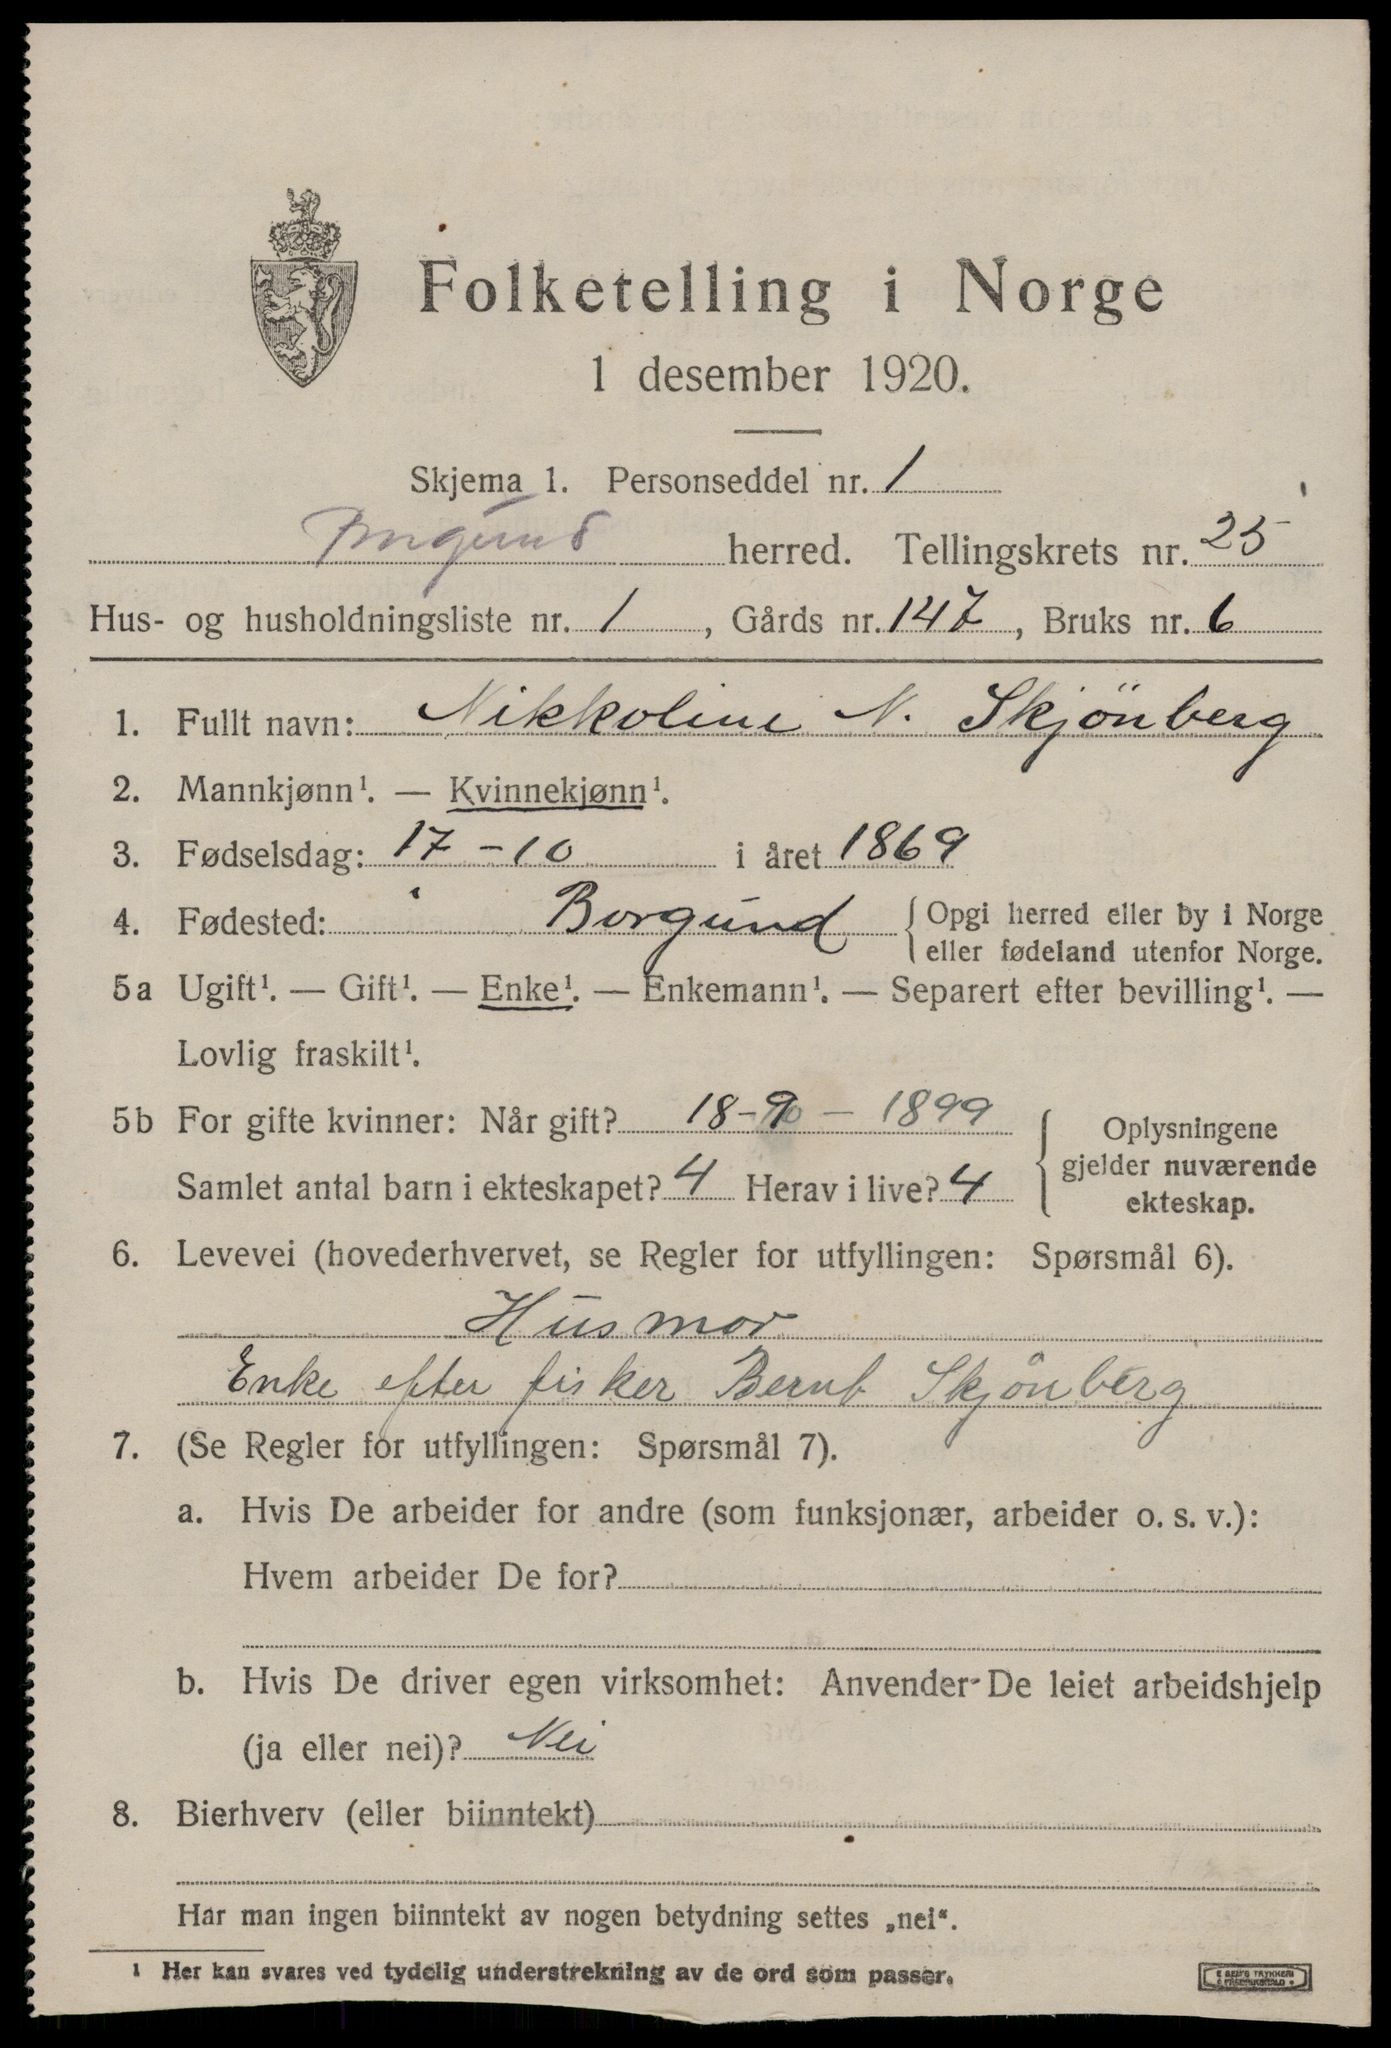 Folketelling i Norge
1 desember 1920.
Skjema 1. Personseddel nr. 1
Borgund herred. Tellingskrets nr. 25
Hus- og husholdningsliste nr. 1, Gårds nr. 147, Bruks nr. 6
1. Fullt navn: Nikkoline N. Skjönberg
2. Mannkjønn¹. — Kvinnekjønn¹.
3. Fødselsdag: 17-10 i året 1869
4. Fødested: Borgund { Opgi herred eller by i Norge
eller fødeland utenfor Norge.
5a Ugift¹. — Gift¹. — Enke¹. — Enkemann¹. — Separert efter bevilling¹. —
Lovlig fraskilt¹.
5b For gifte kvinner: Når gift? 18- - 1899
Samlet antal barn i ekteskapet? 4 Herav i live? 4
Oplysningene
gjelder nuværende
ekteskap.
6. Levevei (hovederhvervet, se Regler for utfyllingen: Spørsmål 6).
Husmor
Enke efter fisker Bernt Skjönberg
7. (Se Regler for utfyllingen: Spørsmål 7).
a. Hvis De arbeider for andre (som funksjonær, arbeider o. s. v.):
Hvem arbeider De for?
b. Hvis De driver egen virksomhet: Anvender De leiet arbeidshjelp
(ja eller nei)? Nei
8. Bierhverv (eller biinntekt)
Har man ingen biinntekt av nogen betydning settes „nei“.
¹ Her kan svares ved tydelig understrekning av de ord som passer.